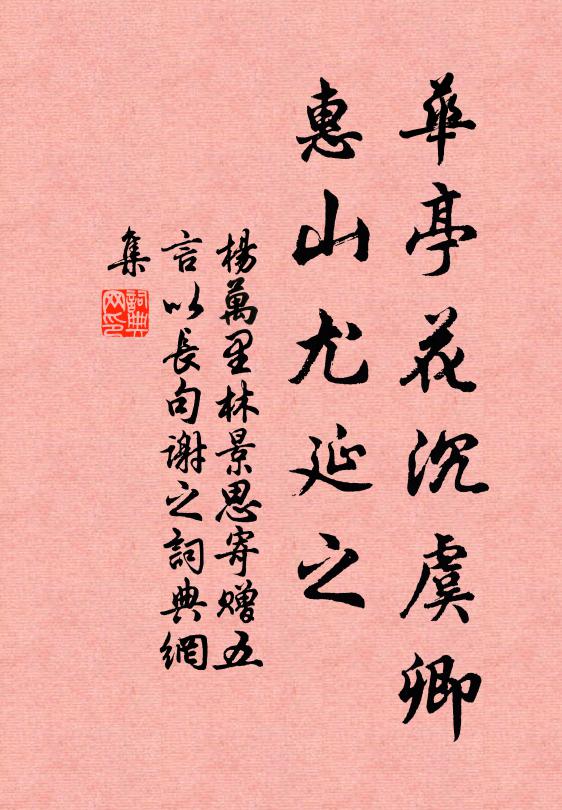 華亭花沉虞卿
惠山尤延之
楊萬里林景思寄贈五
言以長句謝之詞典網
集
詞典網印